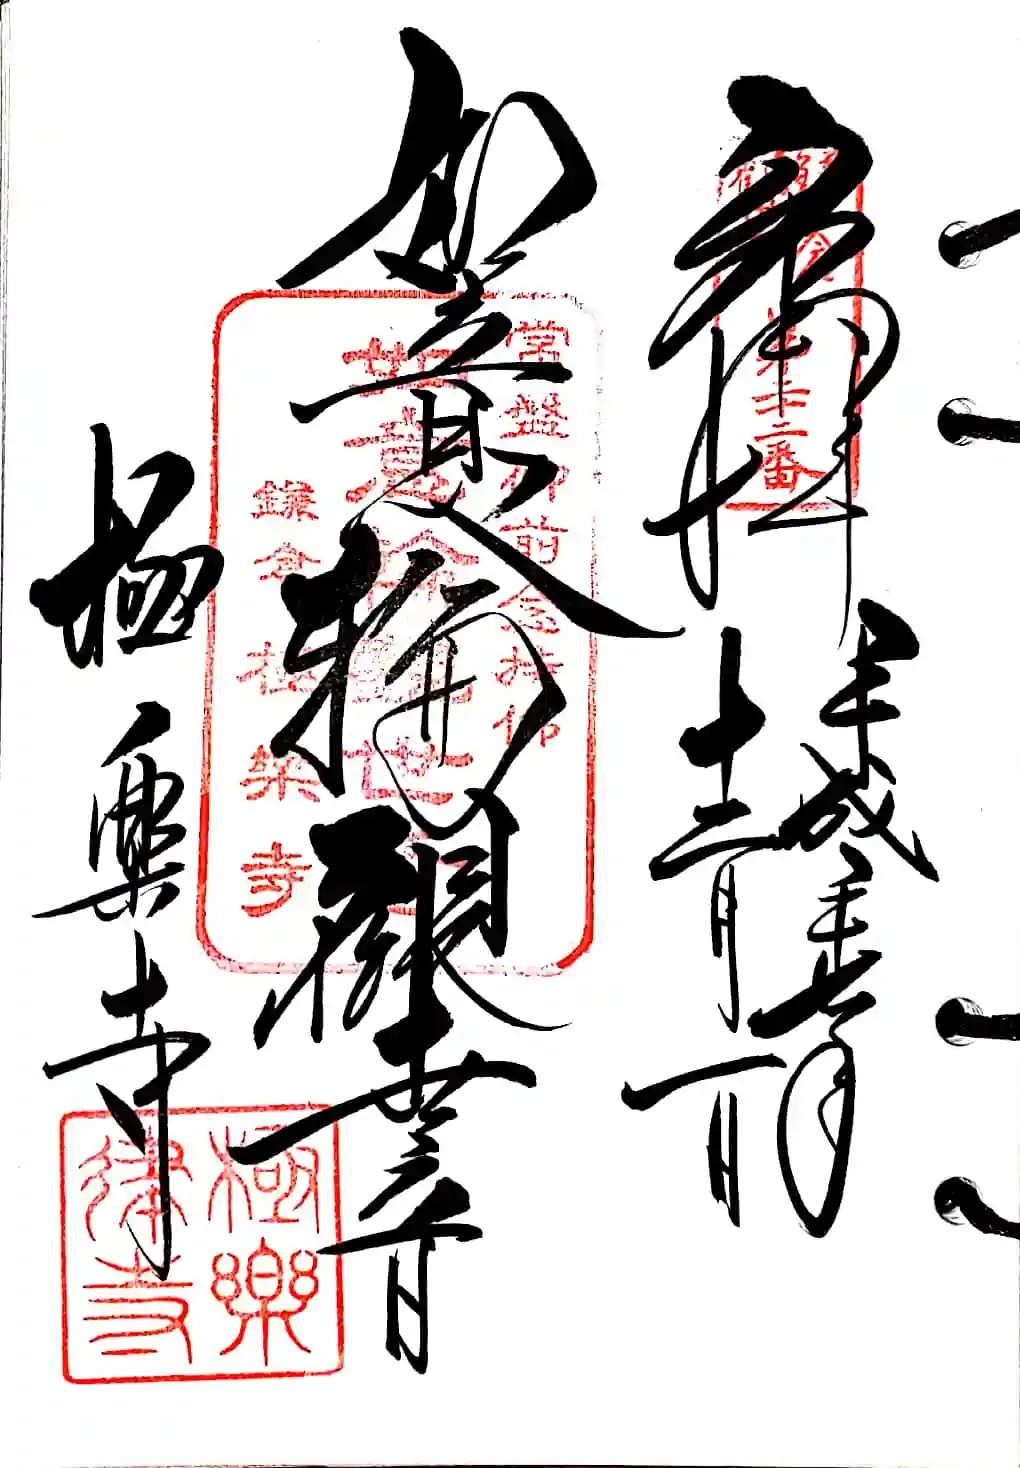 奉拝
平成
年
十二月一日
第二十二番
如意輪観世音
常盤御前念持仏
如意輪観世音
鎌倉極楽寺
極楽寺
極樂
律寺